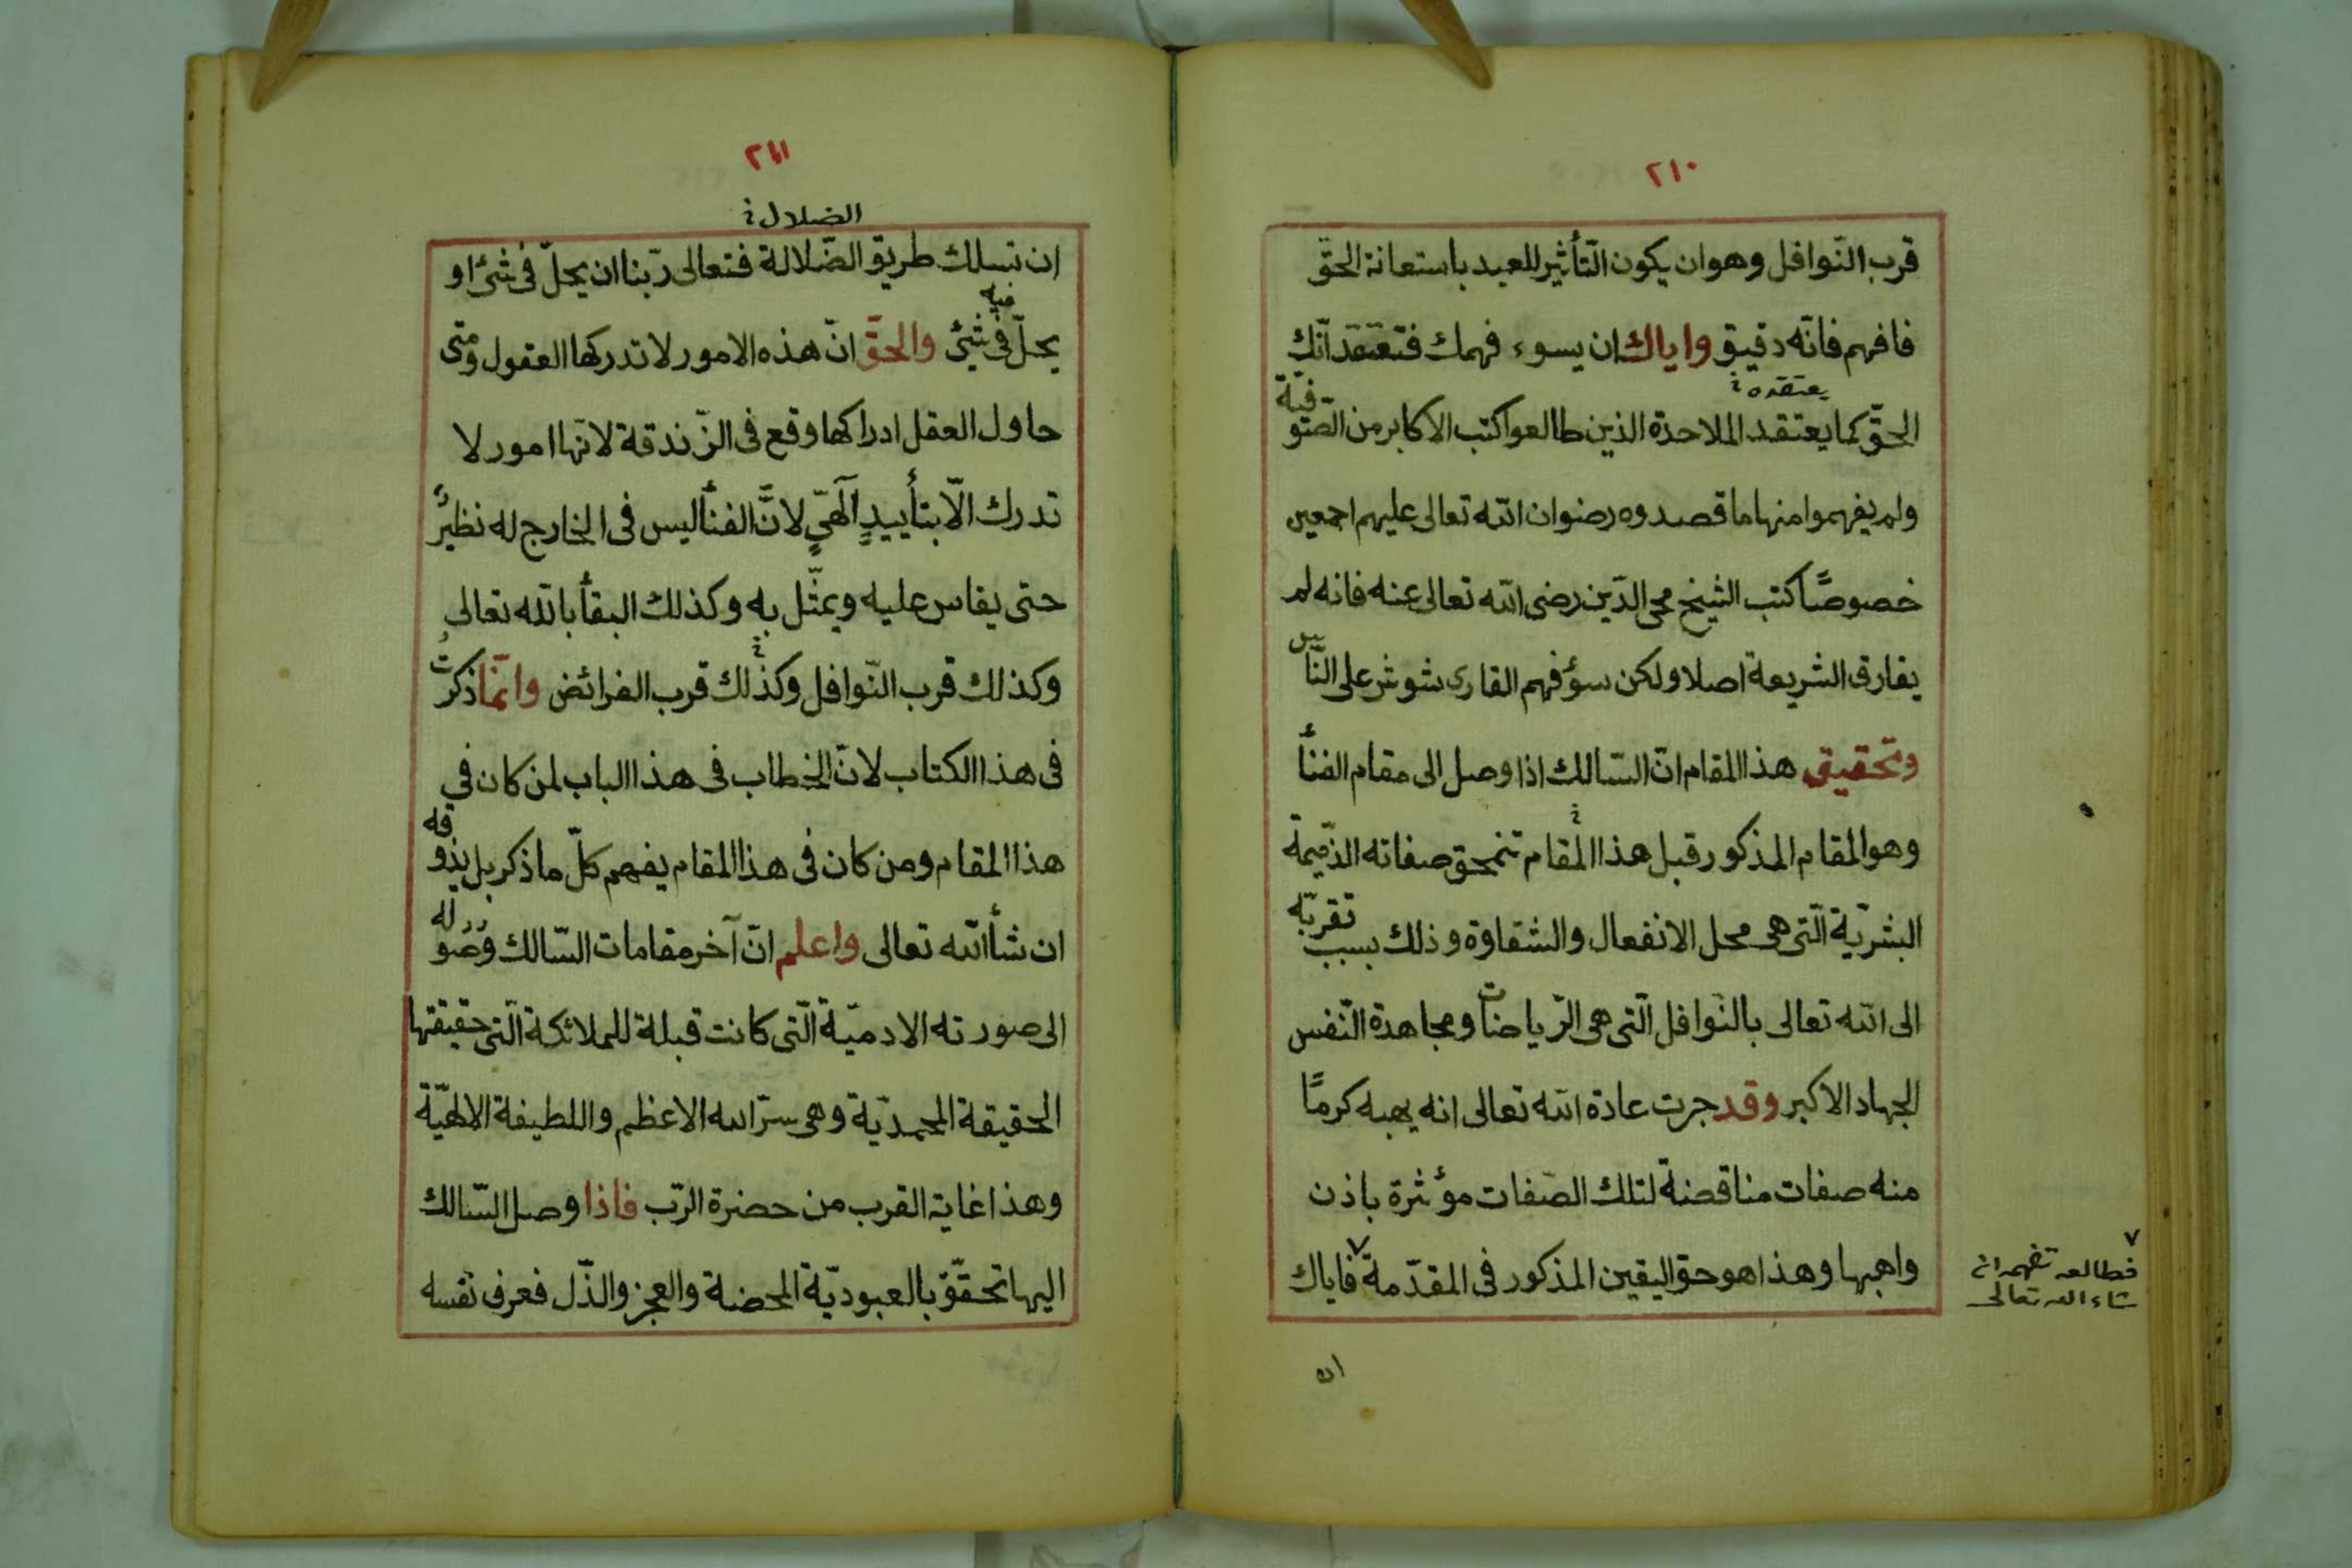 ٢١٠
قرب النّوافل وهو ان يكون التّأثير للعبد باستعانة الحقّ
فافهم فانّه دقيق واياك ان يسوء فهمك فتعتقد انّك
يعتقده
الحقّ كما يعتقد الملاحدة الذين طالعوا كتب الاكابر من الصّوفيّة
ولم يفهموا منها ما قصدوه رضوان الله تعالى عليهم اجمعين
خصوصًا كتب الشيخ محى الدّين رضى الله تعالى عنه فانه لم
يفارق الشريعة اصلا ولكن سؤ فهم القارى شوش على النّاس
وتحقيق هذا المقام انّ السّالك اذا وصل الى مقام الفنأ
وهو المقام المذكور قبل هذا المقام تنمحق صفاته الذّميمة
البشريّة الّتى هى محل الانفعال والشقاوة وذلك بسبب تقربّه
الى الله تعالى بالنّوافل الّتى هى الرّياضات ومجاهدة النّفس
الجهاد الاكبر وقد جرت عادة الله تعالى انه يهبه كرمًا
منه صفات مناقضة لتلك الصّفات مؤثرة باذن
واهبها وهذا هو حق اليقين المذكور فى المقدّمة ٧ فاياك
٧
فطالعه تفهم ان
شاء الله تعالى
ان
٢١١
الضلال
ان تسلك طريق الضّلالة فتعالى ربّنا ان يحلّ فى شئ او
فيه
يحلّ فى شئ والحقّ انّ هذه الامور لا تدركها العقول ومتى
حاول العقل ادراكها وقع فى الزّندقة لانّها امور لا
تدرك الّا بتأييدٍ آلهىٍّ لانَّ الفنأ ليس فى الخارج له نظيرٌ
حتى يقاس عليه ويمثّل به وكذلك البقأ بالله تعالى
وكذلك قرب النّوافل وكذلك قرب الفرائض وانّما ذكرتُ
فى هذا الكتاب لانّ الخطاب فى هذا الباب لمن كان فى
هذا المقام ومن كان فى هذا المقام يفهم كلّ ما ذكر بل يذوقه
ان شأ الله تعالى واعلم انّ آخر مقامات السّالك وُصُوله
الى صورته الادميّة الّتى كانت قبلة للملائكة الّتى حقيقتها
الحقيقة المحمديّة وهى سرّ الله الاعظم واللطيفة الالهيّة
وهذا غاية القرب من حضرة الرّب فاذا وصل السّالك
اليها تحقّق بالعبوديّة المحضة والعجز والذّل فعرف نفسه